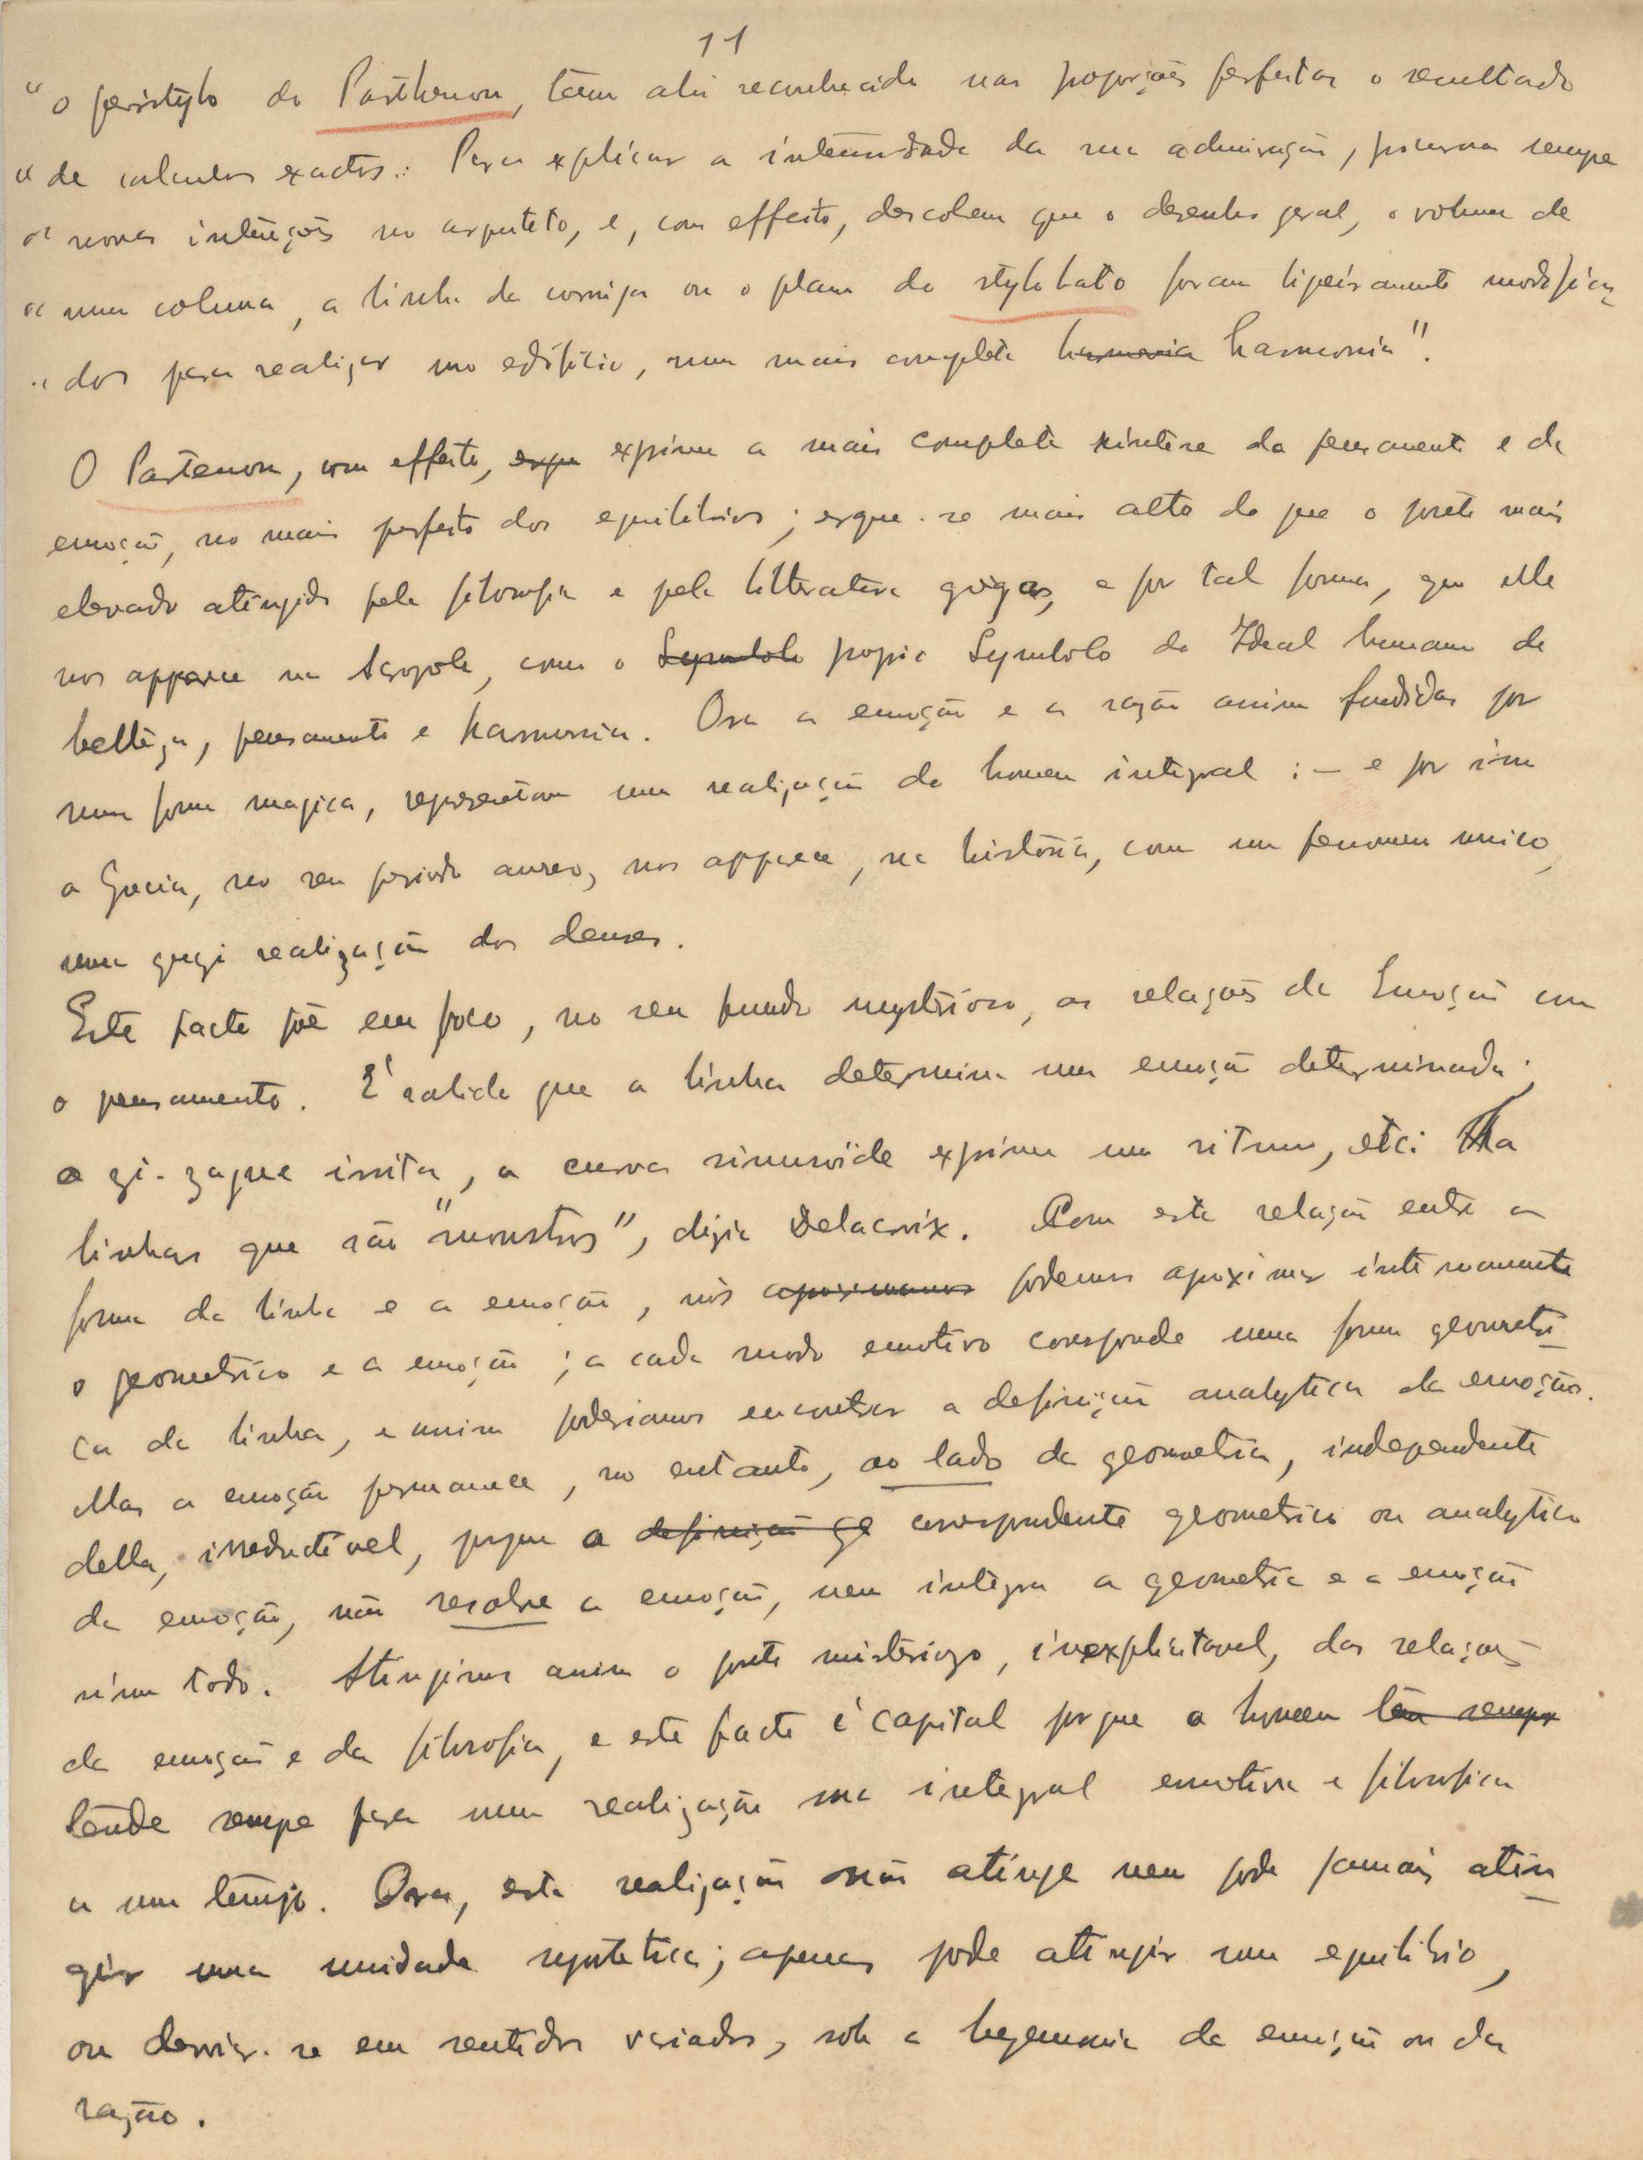 11
"o peristylo do Parthenon, têm ahi reconhecido nas proporções perfeitas o resultado
"de calculos exactos.: Para explicar a intensidade da sua admiração, procuram sempre
"novas intenções no arquiteto, e, com effeito, descobrem que o desenho geral, o volume de
"uma coluna, a linha da cornija ou o plano do stylobato foram ligeiramente modifica
"dos para realizar no edificio, uma mais completa harmonia harmonia".
O Partenon, com effeito, expri exprime a mais completa sintese do pensamento e da
emoção, no mais perfeito dos equilibrios; ergue-se mais alto do que o ponto mais
elevado atingido pela filosofia e pela litteratura gregas, e por tal forma, que elle
nos apparece na Acropole, como o Symbolo proprio Symbolo do Ideal humano de
belleza, pensamento e harmonia. Ora a emoção e a razão assim fundidas por
uma forma magica, representam uma realização do homem integral : — e por isso
a Grecia, no seu periodo aureo, nos apparece, na historia, como um fenomeno unico,
uma quasi realização dos deuses.
Este facto põe em foco, no seu fundo mysterioso, as relações da Emoção com
o pensamento. É sabido que a linha determina uma emoção determinada;
o zi-zague irrita, a curva sinusoide exprime um ritmo, etc: Ha
linhas que são "monstros", dizia Delacroix. Com esta relação entre a
forma da linha e a emoção, nós aproximamos podemos aproximar intimamente
o geometrico e a emoção; a cada modo emotivo corresponde uma forma geometri_
ca da linha, e assim poderiamos encontrar a definição analytica da emoção.
Mas a emoção permanece, no entanto, ao lado da geometria, independente
della, irreductivel, porque a definição ge correspondente geometrico ou analytico
da emoção, não resolve a emoção, nem integra a geometria e a emoção
n'um todo. Atingimos assim o ponto misterioso, inexplicavel, das relações
da emoção e da filosofia, e este facto é capital porque o homem tem sempre
tende sempre para uma realização sua integral emotiva e filosofica
a um tempo. Ora, esta realização não atinge nem pode jamais atin_
gir uma unidade syntetica; apenas pode atingir um equilibrio,
ou desviar-se em sentidos variados, sob a hegemonia da emoção ou da
razão.